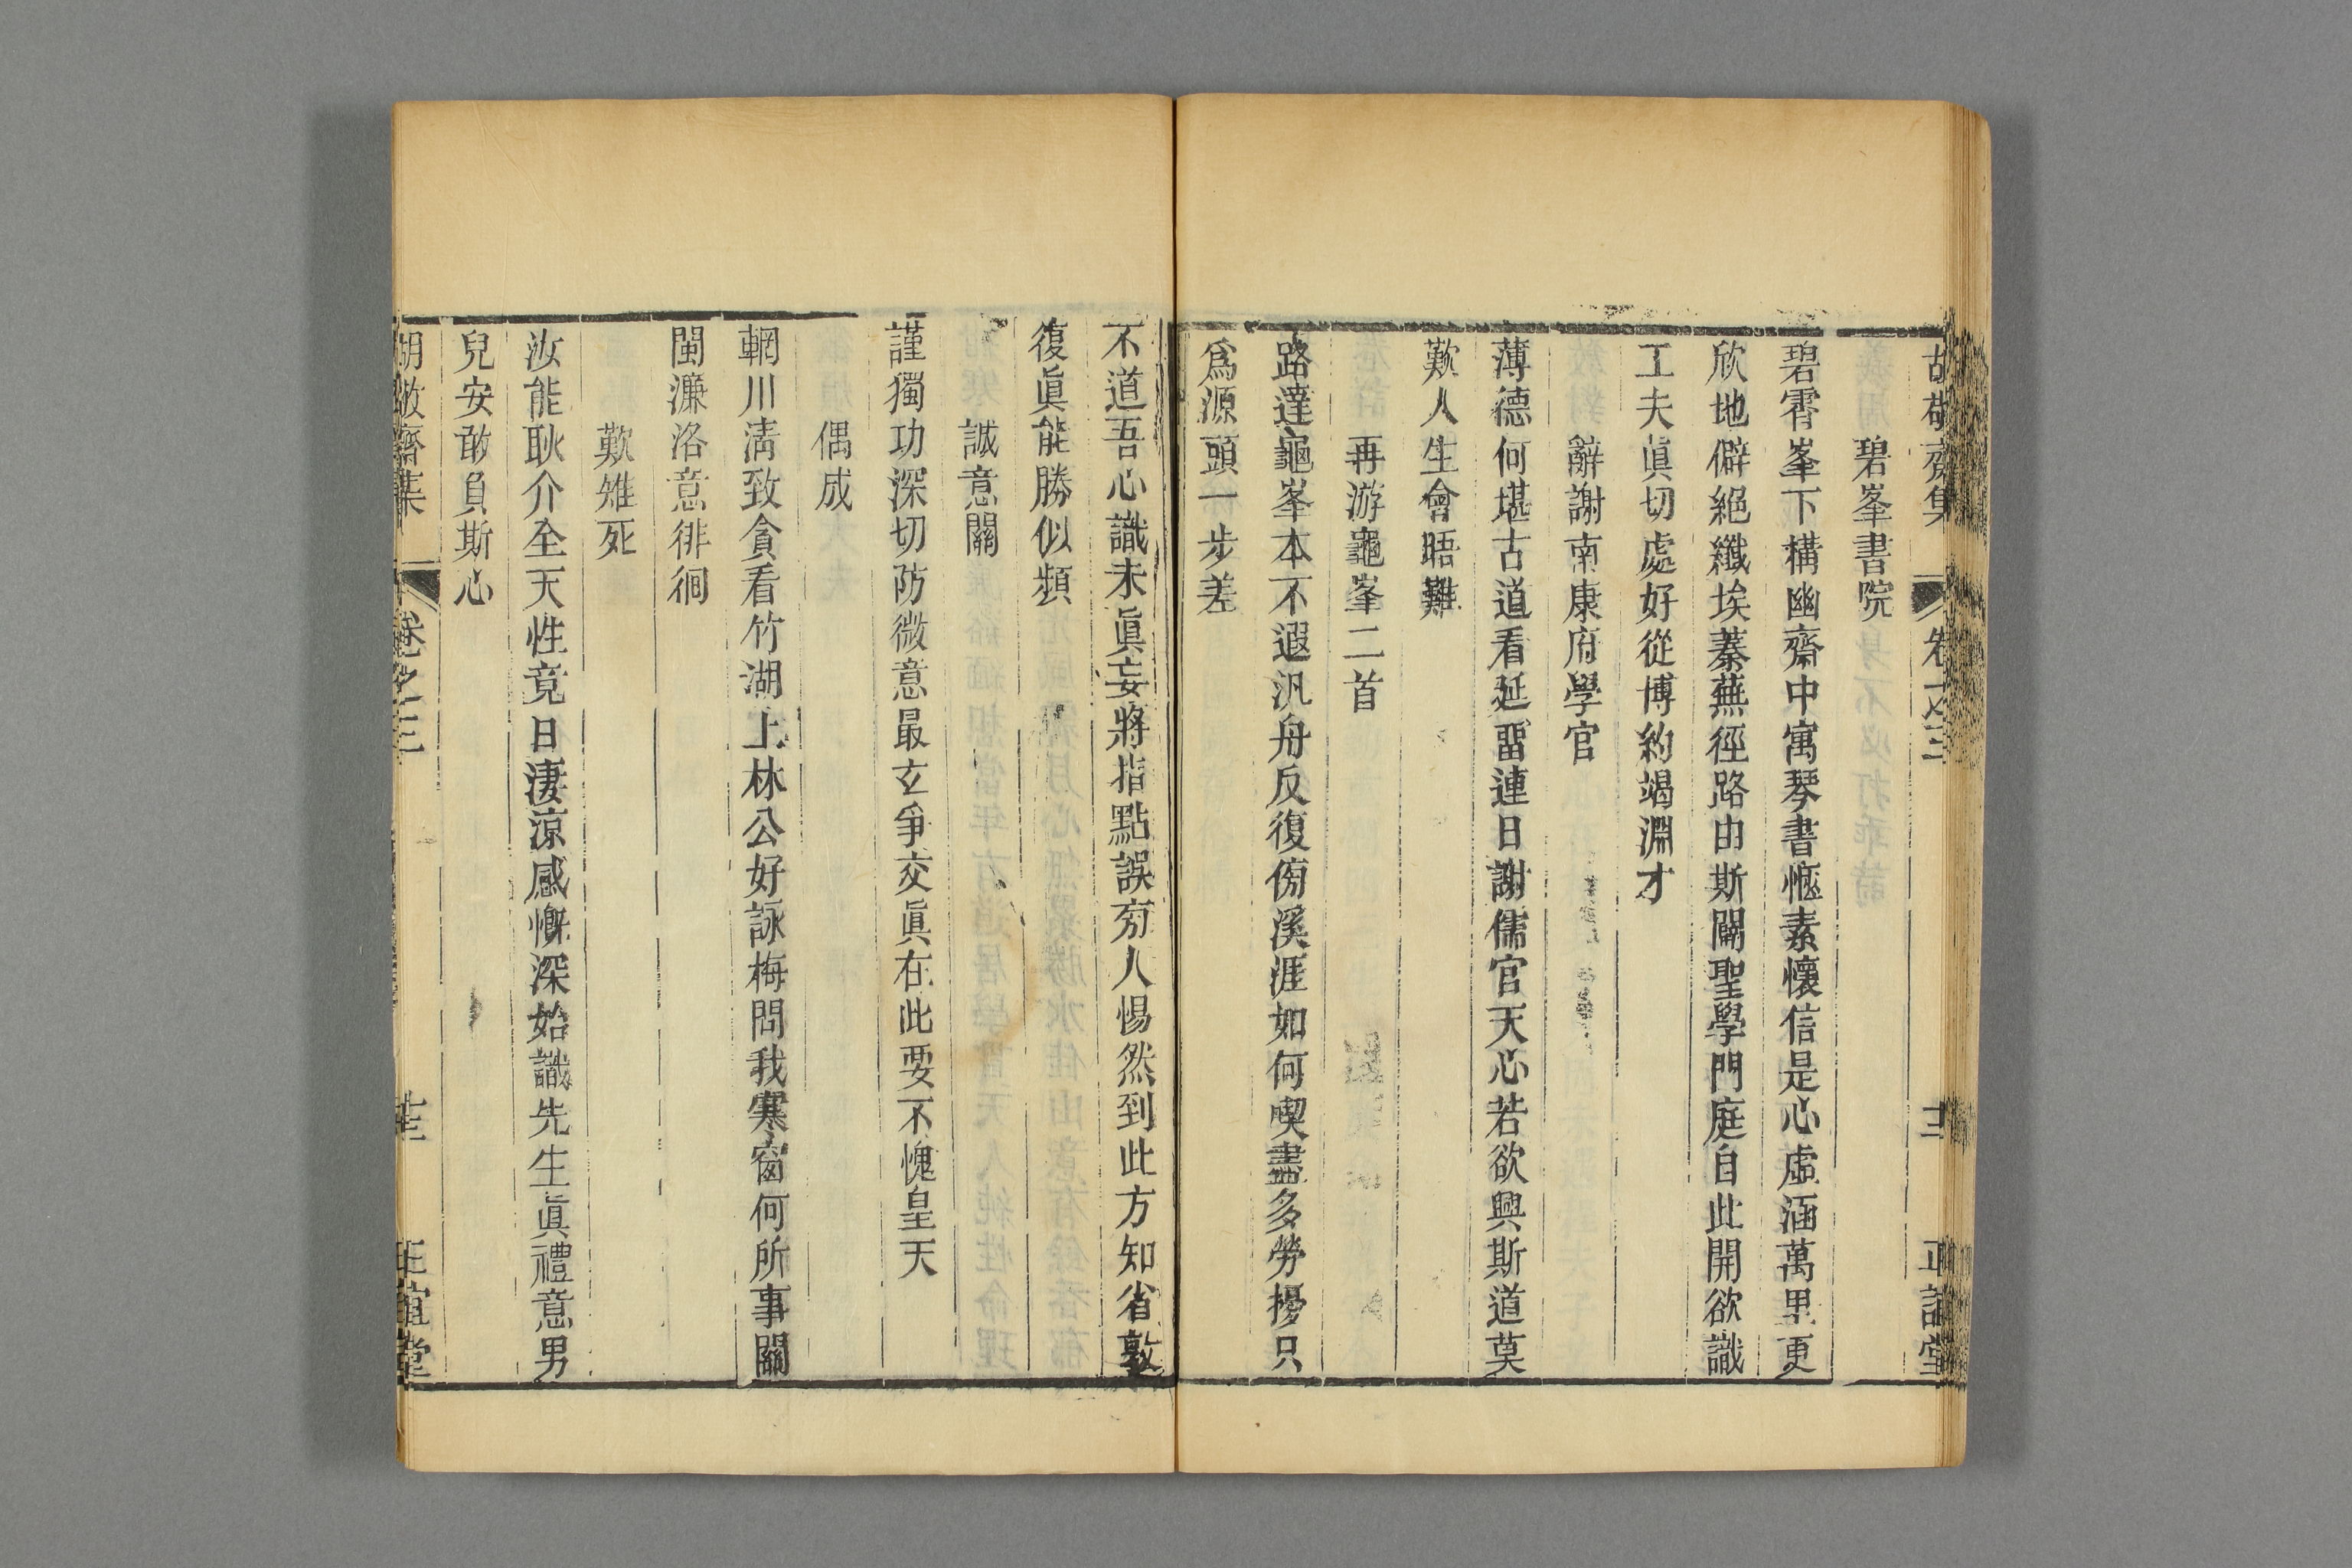 胡敬齋集 卷之三 十二 正誼堂
碧峯書院
碧霄峯下構幽齋中寓琴書愜素懷信是心虛涵萬里更
欣地僻絕纖埃蓁蕪徑路由斯闢聖學門庭自此開欲識
工夫眞切處好從博約竭淵才
辭謝南康府學官
薄德何堪古道看延畱連日謝儒官天心若欲興斯道莫
歎人生會晤難
再游龜峯二首
路達龜峯本不遐汎舟反復傍溪涯如何喫盡多勞擾只
爲源頭一步差
不道吾心識未眞妄將指點誤旁人惕然到此方知省敦
復眞能勝似頻
誠意關
謹獨功深切防微意最玄爭交眞在此要不愧皇天
偶成
輞川淸致貪看竹湖上林公好詠梅問我寒窗何所事關
閩濂洛意徘徊
歎雉死
汝能耿介全天性竟日淒涼感慨深始識先生眞禮意男
兒安敢負斯心
胡敬齋集 卷之三 十三 正誼堂